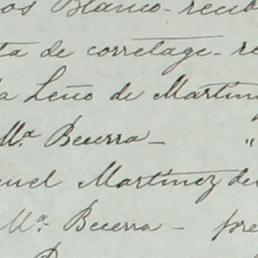 os Blanco - recib
ta de corretage - re
a Leño de Martin
Mª Becerra - "
uel Martinez de
Mª Becerra - pre